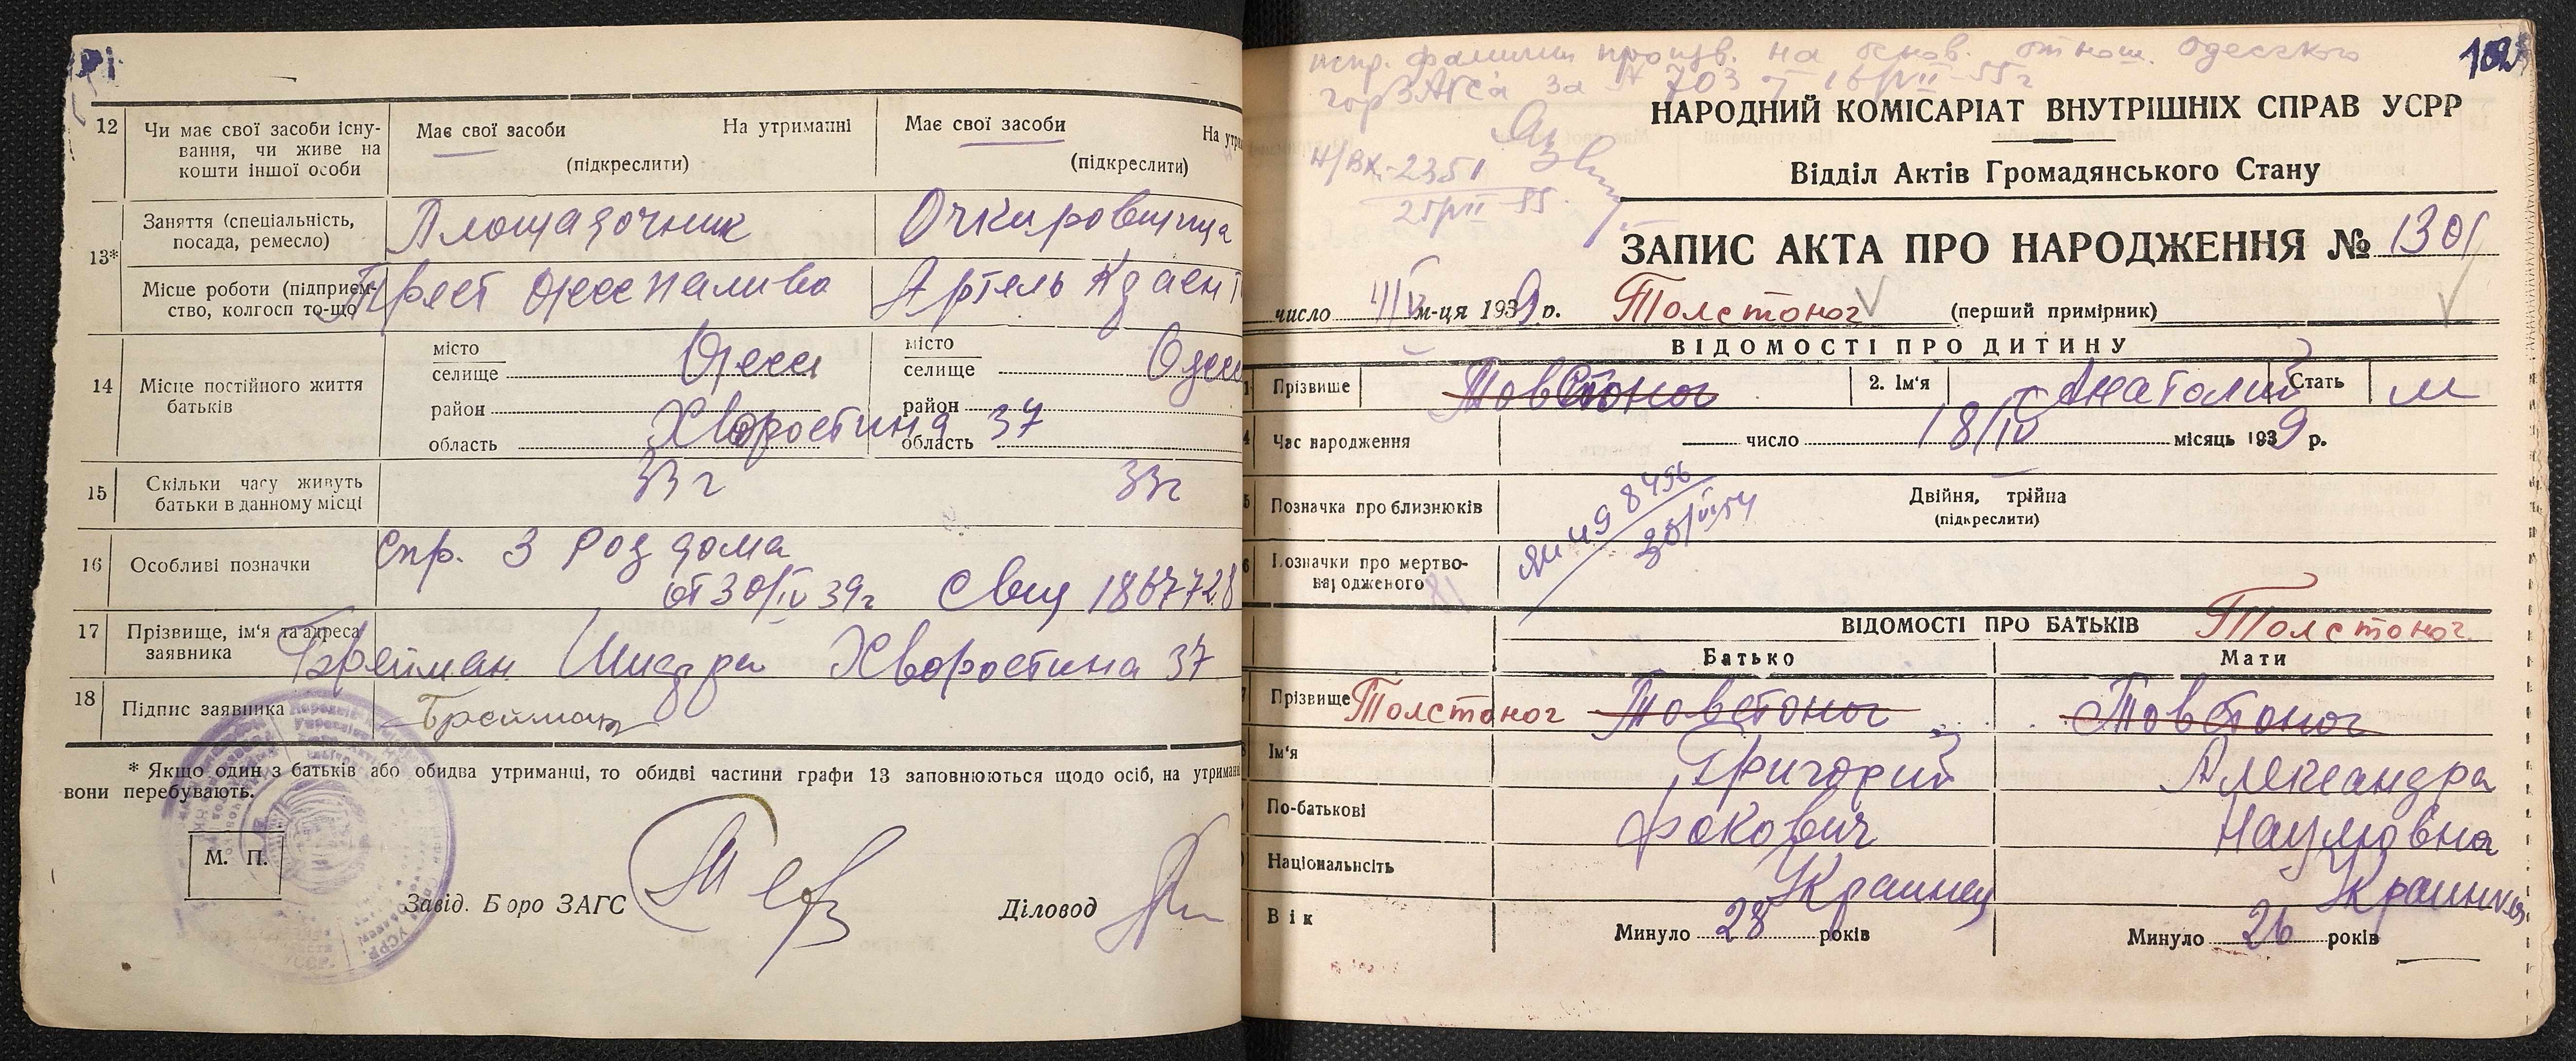 12 Чи має свої засоби існу-
вання, чи живе на
кошти іншої особи
Має свої засоби На утриманні
(підкреслити)
Має свої засоби На утри
(підкреслити)
13*
Заняття (спеціальність,
посада, ремесло)
Площадочник
Місце роботи (підприєм-
ство, колгосп то-що
Артель
14 Місце постійного життя
батьків
місто
селище
район
область
місто
селище
район
область
Хворостина 37
15 Скільки часу живуть
батьки в данному місці
33 г
33 г
16 Особливі позначки
Спр. з род дома
от 30/IV 39 г
17 Прізвище, ім'я та адреса
заявника
Брейман Хворостина 37
18 Підпис заявника
Брейман
* Якщо один з батьків або обидва утриманці, то обидві частини графи 13 заповнюються щодо осіб, на утриман
вони перебувають.
М. П.
Завід. Бюро ЗАГС
Діловод
испр. фамилии произв. на основ. отнош. Одесского
горЗАГСа за № 703 от 16/VII-55 г
Н/вх.-2351
25/VII-55.
НАРОДНИЙ КОМІСАРІАТ ВНУТРІШНІХ СПРАВ УСРР
Відділ Актів Громадянського Стану
ЗАПИС АКТА ПРО НАРОДЖЕННЯ № 1301
число м-ця 1939 р. Толстоног (перший примірник)
ВІДОМОСТІ ПРО ДИТИНУ
1 Прізвище Товстоног 2. Ім'я Анатолий Стать м
4 Час народження число 18/IV місяць 1939 р.
5 Позначка про близнюків
Двійня, трійна
(підкреслити)
6 Позначки про мертво-
народженого
ВІДОМОСТІ ПРО БАТЬКІВ Толстоног
Батько Мати
7 Прізвище Толстоног Товстоног Товстоног
8 Ім'я Григорий Александра
По-батькові Фокович Наумовна
Національність Украинец
Вік Минуло 28 років Минуло 26 років